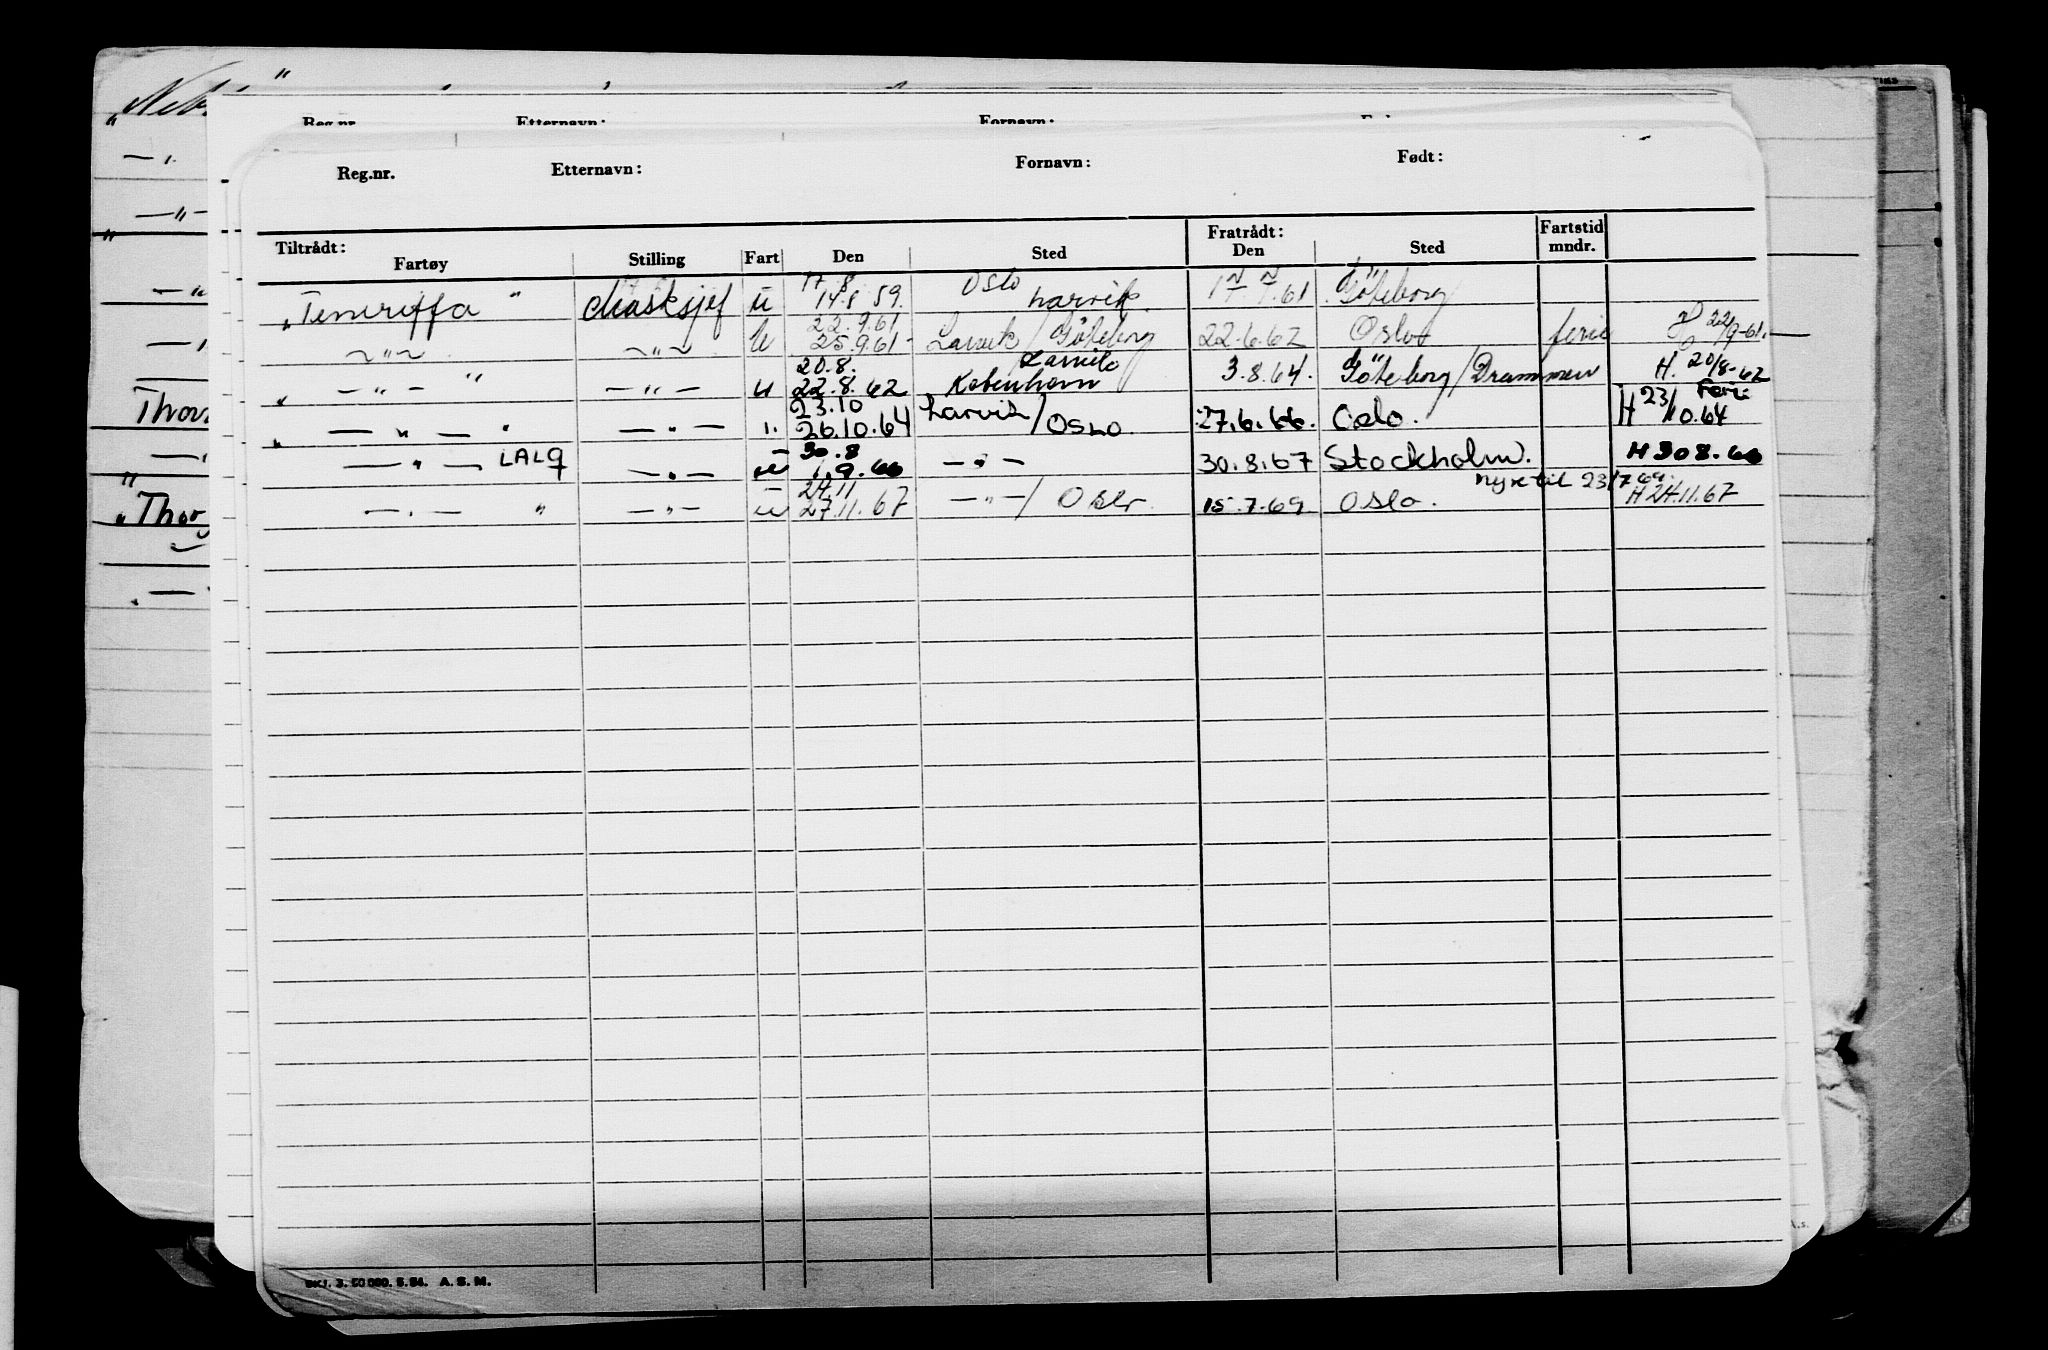 "Neb "
Reg.nr. Etternavn: Fornavn:
Reg.nr. Etternavn: Fornavn: Født:
Tiltrådt: Fratrådt: Fartstid
Fartøy Stilling Fart Den Sted Den Sted mndr.
17.8 Oslo
"Teneriffa" Masksjef U 14.8 59. Larvik 1 .61 Göteborg
22.9.61
— " — — " — U 25.9.61 Larvik / Göteborg 22.6.62 Oslo ferie H 22/9-61.
20.8. Larvik
" — " — " — " — U 22.8.62 København 3.8.64. Göteborg / Drammen H. 20/8-62
23.10 Ferie
Thors " — " — " — " — 26.10.64 Larvik / Oslo 27.6.66. Oslo. H 23/10.64
30.8
— " — LALQ — " — U 1.9.66 — " — 30.8.67 Stockholm. H 30 8.66
24.11 hyre til 23/7 69.
"Thor — " — " — " — U 27.11.67 — " — / Oslo 15.7.69 Oslo. H 24.11.67
SKJ. 3. 50 000. 5.54. A. S. M.
A.s.